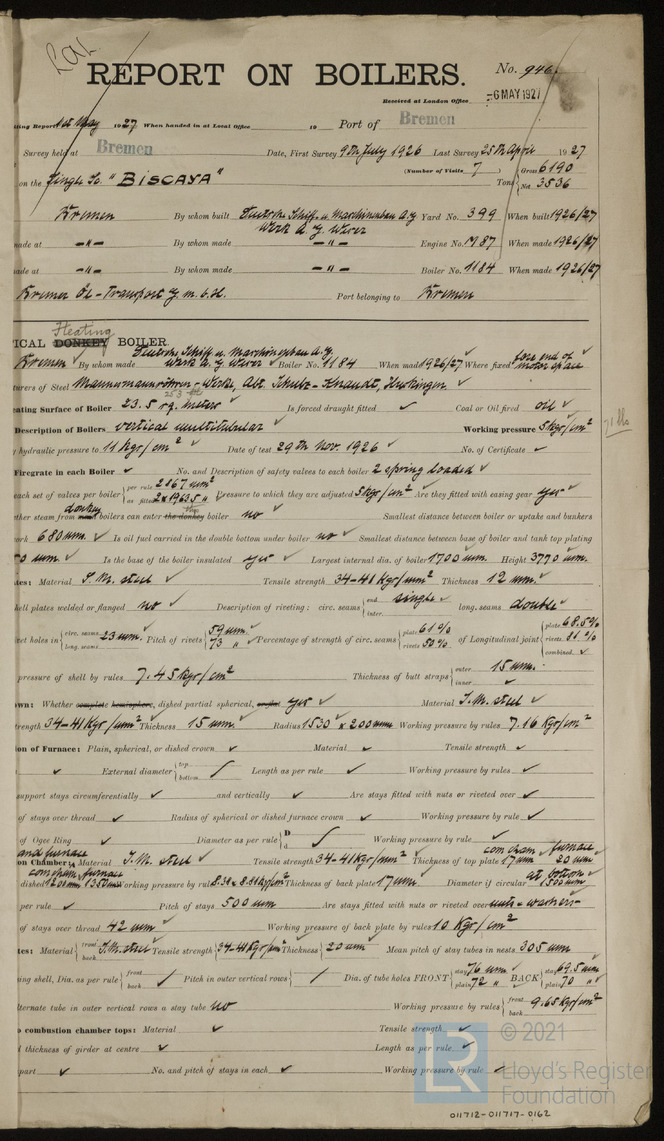 REPORT ON BOILERS. No. 946.
Received at London Office -6 MAY 1927
ting Report 1st May 1927 When handed in at Local Office 19 Port of Bremen
Survey held at Bremen Date, First Survey 9th July 1926 Last Survey 25th April 1927
on the Single Sc. "BISCAYA" (Number of Visits 7) Tons Gross 6190 Net 3536
Bremen By whom built Deutsche Schiff u. Maschinenbau A.G. Werk A.G. Weser Yard No. 399 When built 1926/27
made at -"- By whom made -"- Engine No. 1787 When made 1926/27
made at -"- By whom made -"- Boiler No. 1184 When made 1926/27
Bremer Öl-Transport G.m.b.H. Port belonging to Bremen
ICAL DONKEY Heating BOILER.
Bremen ✓ By whom made Deutsche Schiff u. Maschinenbau A.G. Werk A.G. Weser ✓ Boiler No. 1184 When made 1926/27 Where fixed fore end of motor space
turers of Steel Mannesmannröhren-Werke, Abt. Schulz-Knaudt, Huckingen. ✓
eating Surface of Boiler 23.5 sq. meters 253 Is forced draught fitted ✓ Coal or Oil fired oil ✓
Description of Boilers vertical multitubular Working pressure 5 kgr/cm² 71 lbs
hydraulic pressure to 11 kgr/cm² ✓ Date of test 29th Nov. 1926 ✓ No. of Certificate ✓
Firegrate in each Boiler ✓ No. and Description of safety valves to each boiler 2 spring loaded ✓
each set of valves per boiler per rule 2167 mm² as fitted 2 x 1963.5 " Pressure to which they are adjusted 5 kgr/cm² Are they fitted with easing gear yes ✓
ther steam from donkey boilers can enter the donkey boiler no ✓ Smallest distance between boiler or uptake and bunkers
680 mm. ✓ Is oil fuel carried in the double bottom under boiler no ✓ Smallest distance between base of boiler and tank top plating
mm. ✓ Is the base of the boiler insulated yes ✓ Largest internal dia. of boiler 1700 mm. Height 3770 mm.
tes: Material S.M. steel ✓ Tensile strength 34-41 kgr/mm² Thickness 12 mm. ✓
hell plates welded or flanged no ✓ Description of riveting: circ. seams end single ✓ inter. long. seams double ✓
vet holes in circ. seams long. seams 23 mm. Pitch of rivets 59 mm 73 " Percentage of strength of circ. seams plate 61% rivets 50% of Longitudinal joint plate 68.5% rivets 81% combined. ✓
pressure of shell by rules 7.45 kgr/cm² Thickness of butt straps outer 15 mm. inner ✓
own: Whether complete hemisphere, dished partial spherical, yes ✓ Material S.M. steel ✓
trength 34-41 kgr/mm² Thickness 15 mm. Radius 1530 x 200 mm Working pressure by rules 7.16 kgr/cm²
ion of Furnace: Plain, spherical, or dished crown ✓ Material ✓ Tensile strength ✓
✓ External diameter top bottom ✓ Length as per rule ✓ Working pressure by rules ✓
support stays circumferentially ✓ and vertically ✓ Are stays fitted with nuts or riveted over ✓
of stays over thread ✓ Radius of spherical or dished furnace crown ✓ Working pressure by rule ✓
of Ogee Ring ✓ Diameter as per rule D d ✓ Working pressure by rule ✓
and furnace
on Chamber: Material S.M. steel ✓ Tensile strength 34-41 kgr/mm² Thickness of top plate com cham 17 mm furnace 20 mm
com cham furnace
dished 1200 mm 1350 mm Working pressure by rule 8.38 & 8.81 kgr/cm² Thickness of back plate 17 mm. Diameter if circular at bottom 1500 mm
per rule ✓ Pitch of stays 500 mm Are stays fitted with nuts or riveted over nuts & washers
of stays over thread 42 mm ✓ Working pressure of back plate by rules 10 kgr/cm²
tes: Material front back S.M. steel Tensile strength 34-41 kgr/mm² Thickness 20 mm ✓ Mean pitch of stay tubes in nests 305 mm
ing shell, Dia. as per rule front back ✓ Pitch in outer vertical rows ✓ Dia. of tube holes FRONT stay 76 mm plain 72 " BACK stay 69.5 mm plain 70 "
lternate tube in outer vertical rows a stay tube no Working pressure by rules front 9.65 kgr/cm² back
o combustion chamber tops: Material ✓ Tensile strength ✓
d thickness of girder at centre ✓ Length as per rule ✓
part ✓ No. and pitch of stays in each ✓ Working pressure by rule ✓
© 2021
Lloyd's Register
Foundation
011712-011717-0162